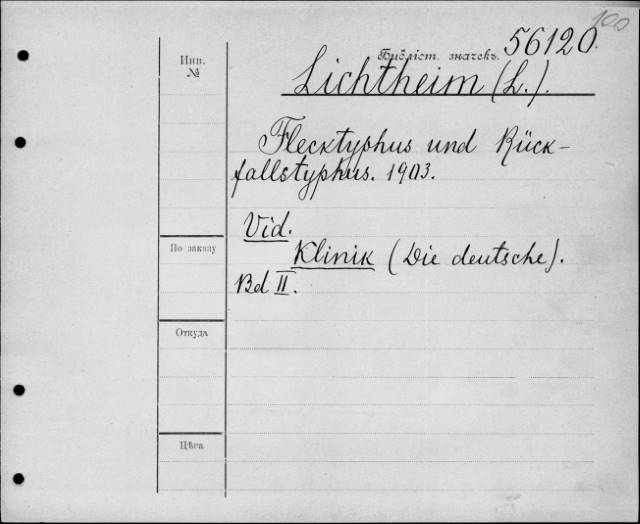 100
56120.
Инв.
№
Библіот. значекъ.
Lichtheim (L.).
Flecktyphus und Rück-
fallstyphus. 1903.
Vid.
По заказу
Klinik (Die deutsche).
Bd II.
Откуда
Цѣна